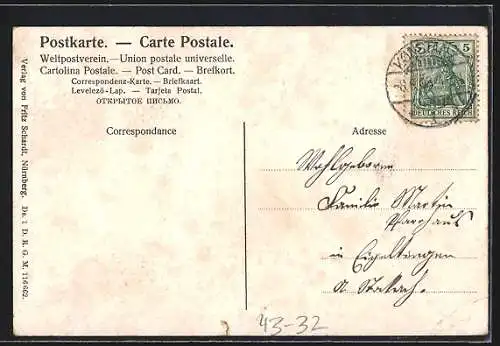 Postkarte. — Carte Postale.
Weltpostverein. — Union postale universelle.
Cartolina Postale. — Post Card. — Brefkort.
Correspondenz-Karte. — Briefkaart.
Levelező-Lap. — Tarjeta Postal.
ОТКРЫТОЕ ПИСЬМО.
Correspondance
Adresse
5
DEUTSCHES REICH
Wohlgeboren
Familie Martin
Pfarrhaus
in Eigeltingen
A Stockach.
Verlag von Fritz Schardt, Nürnberg. De. 1 D. R. G. M. 116462.
43-32